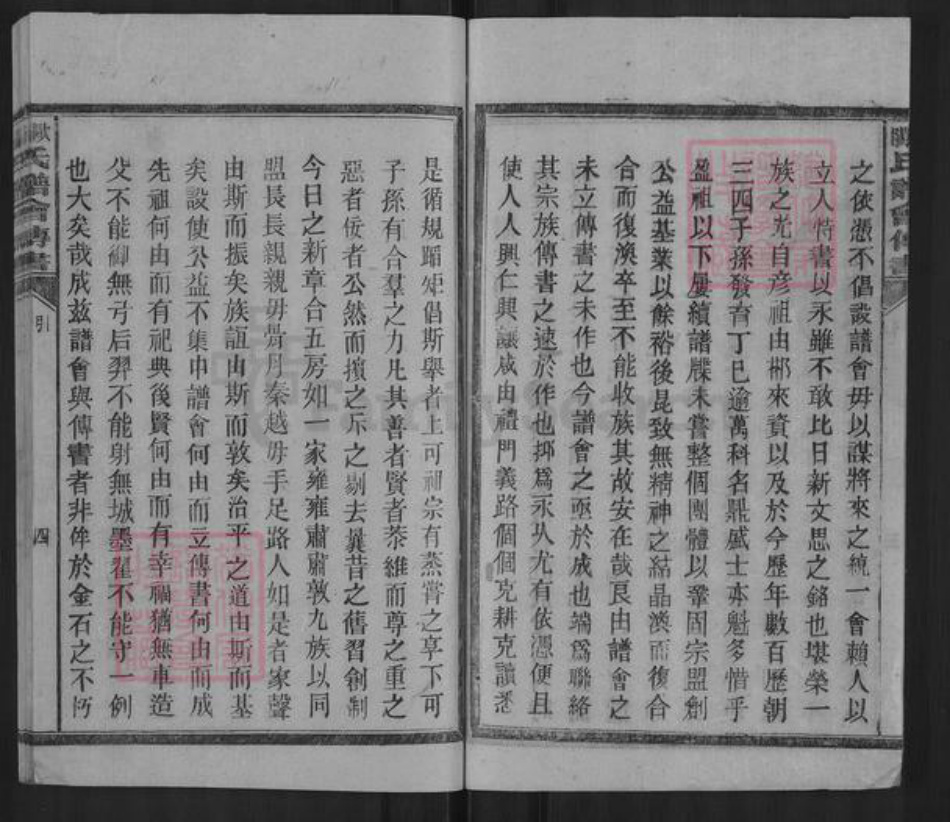 之依憑不倡設譜會毋以謀將來之統一會賴人以
立人恃書以永雖不敢比日新文思之銘也堪榮一
族之光自彥祖由梆來資以及於今歷年數百歷朝
三四子孫發育丁已逾萬科名鼎盛士亦魁多惜乎
盈祖以下屢續譜牒未嘗整個團體以鞏固宗盟創
公益基業以餘裕後昆致無精神之結晶渙而復合
合而復渙卒至不能收族其故安在哉良由譜會之
未立傳書之未作也今譜會之亟於成也端爲聯絡
其宗族傳書之速於作也抑爲永久尤有依憑便且
使人人興仁興讓咸由禮門義路個個克耕克讀悉
是循規蹈矩倡斯舉者上可祖宗有蒸嘗之享下可
子孫有合羣之力凡其善者賢者恭維而尊之重之
惡者佞者公然而擯之斥之剔去曩昔之舊習創制
今日之新章合五房如一家雍雍肅肅敦九族以同
盟長長親親毋胥月秦越毋手足路人如是者家聲
由斯而振矣族誼由斯而敦矣治平之道由斯而基
矣設使公益不集中譜會何由而立傳書何由而成
先祖何由而有祀典後賢何由而有幸福猶無車造
父不能御無弓后羿不能射無城墨翟不能守一例
也大矣哉成兹譜會與傳書者非侔於金石之不朽
歐氏譜會傳書
引
四